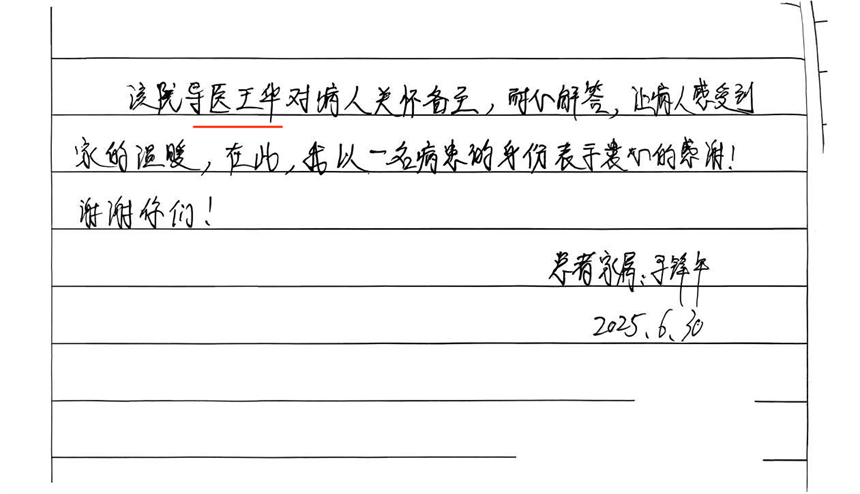 该院导医王华对病人关怀备至，耐心解答，让病人感受到
家的温暖，在此，我以一名病患的身份表予衷心的感谢！
谢谢你们！
患者家属：于锋午
2025.6.30